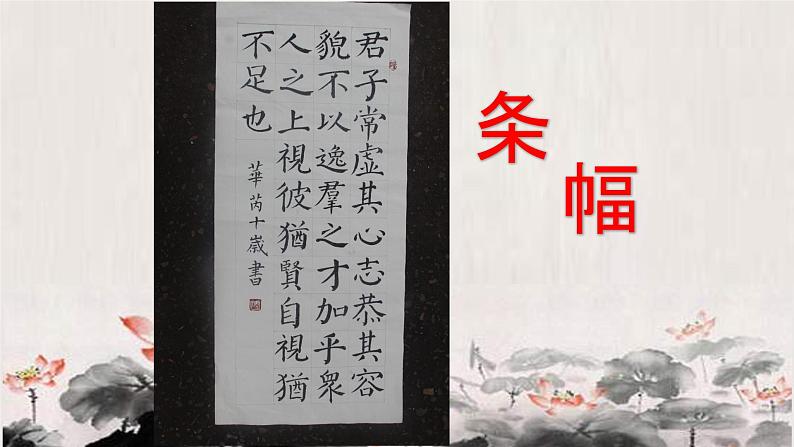 君子常虚其心志恭其容
貌不以逸羣之才加乎衆
人之上視彼猶賢自視猶
不足也
華芮十歲書
条幅